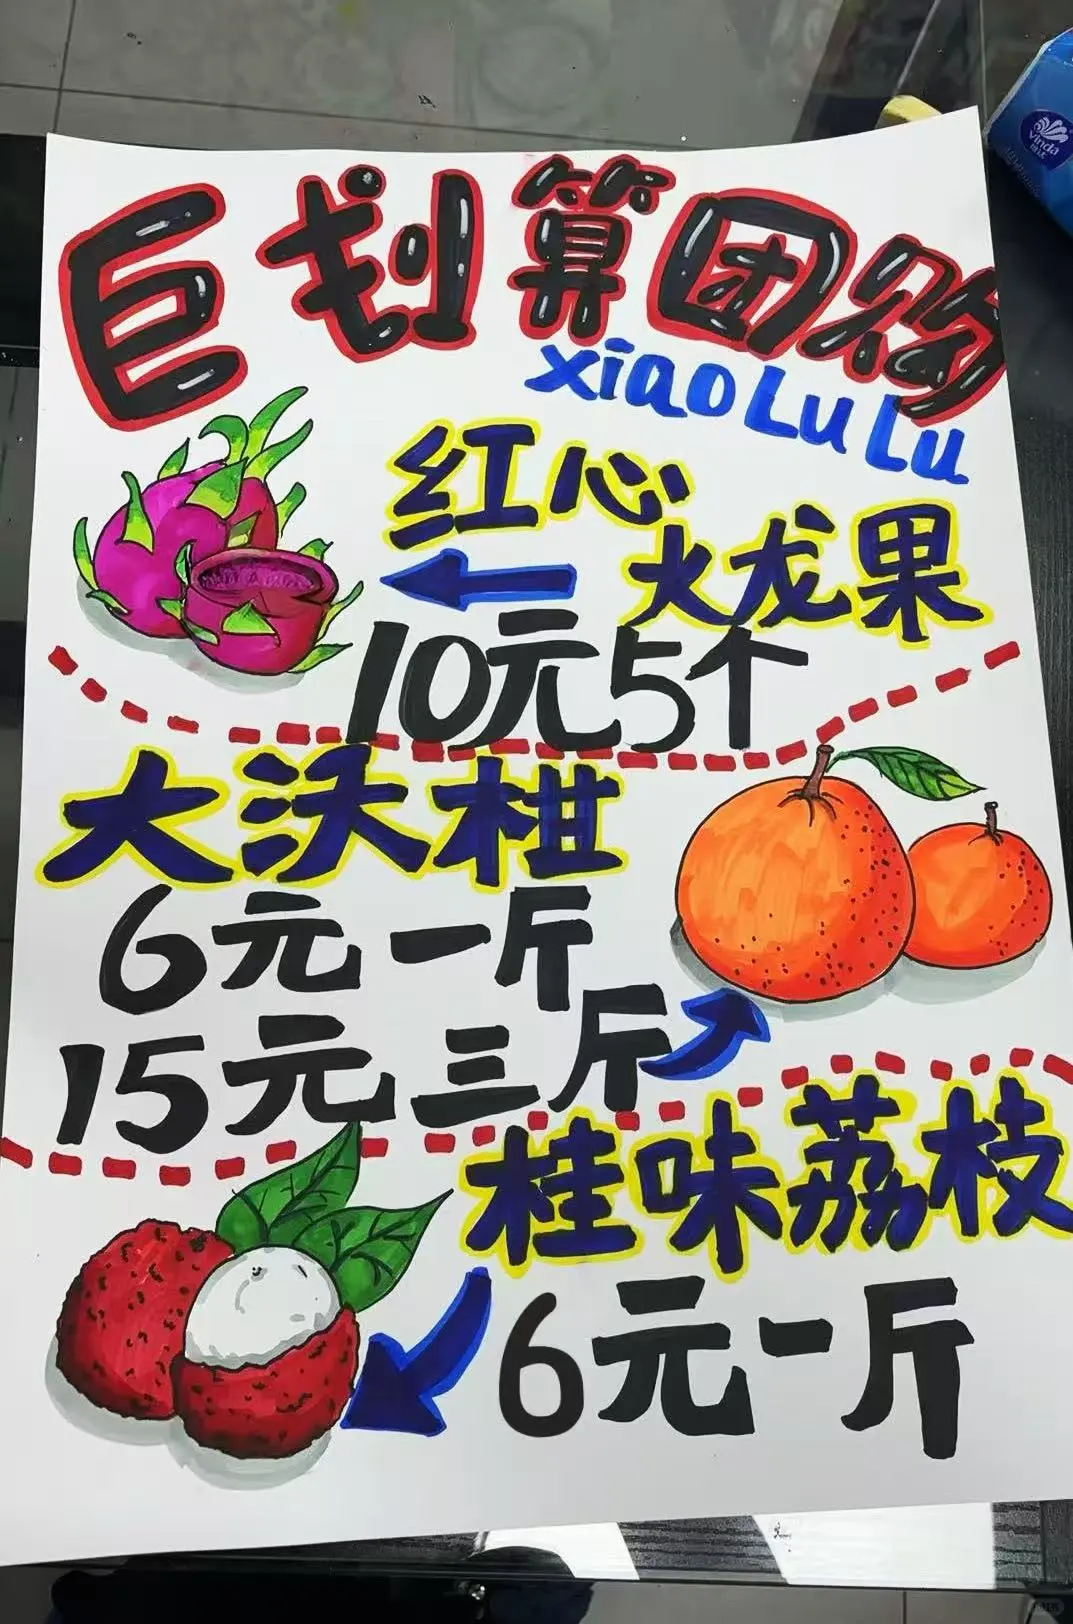 巨划算团购
xiaoLuLu
红心
火龙果
10元5个
大沃柑
6元一斤
15元三斤
桂味荔枝
6元一斤
Vinda
维达
小红书